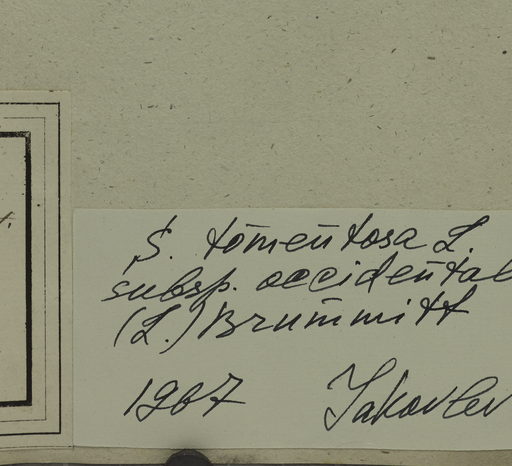 S. tomentosa L.
subsp. occidental
(L.) Brummitt
1967 Jakovlev